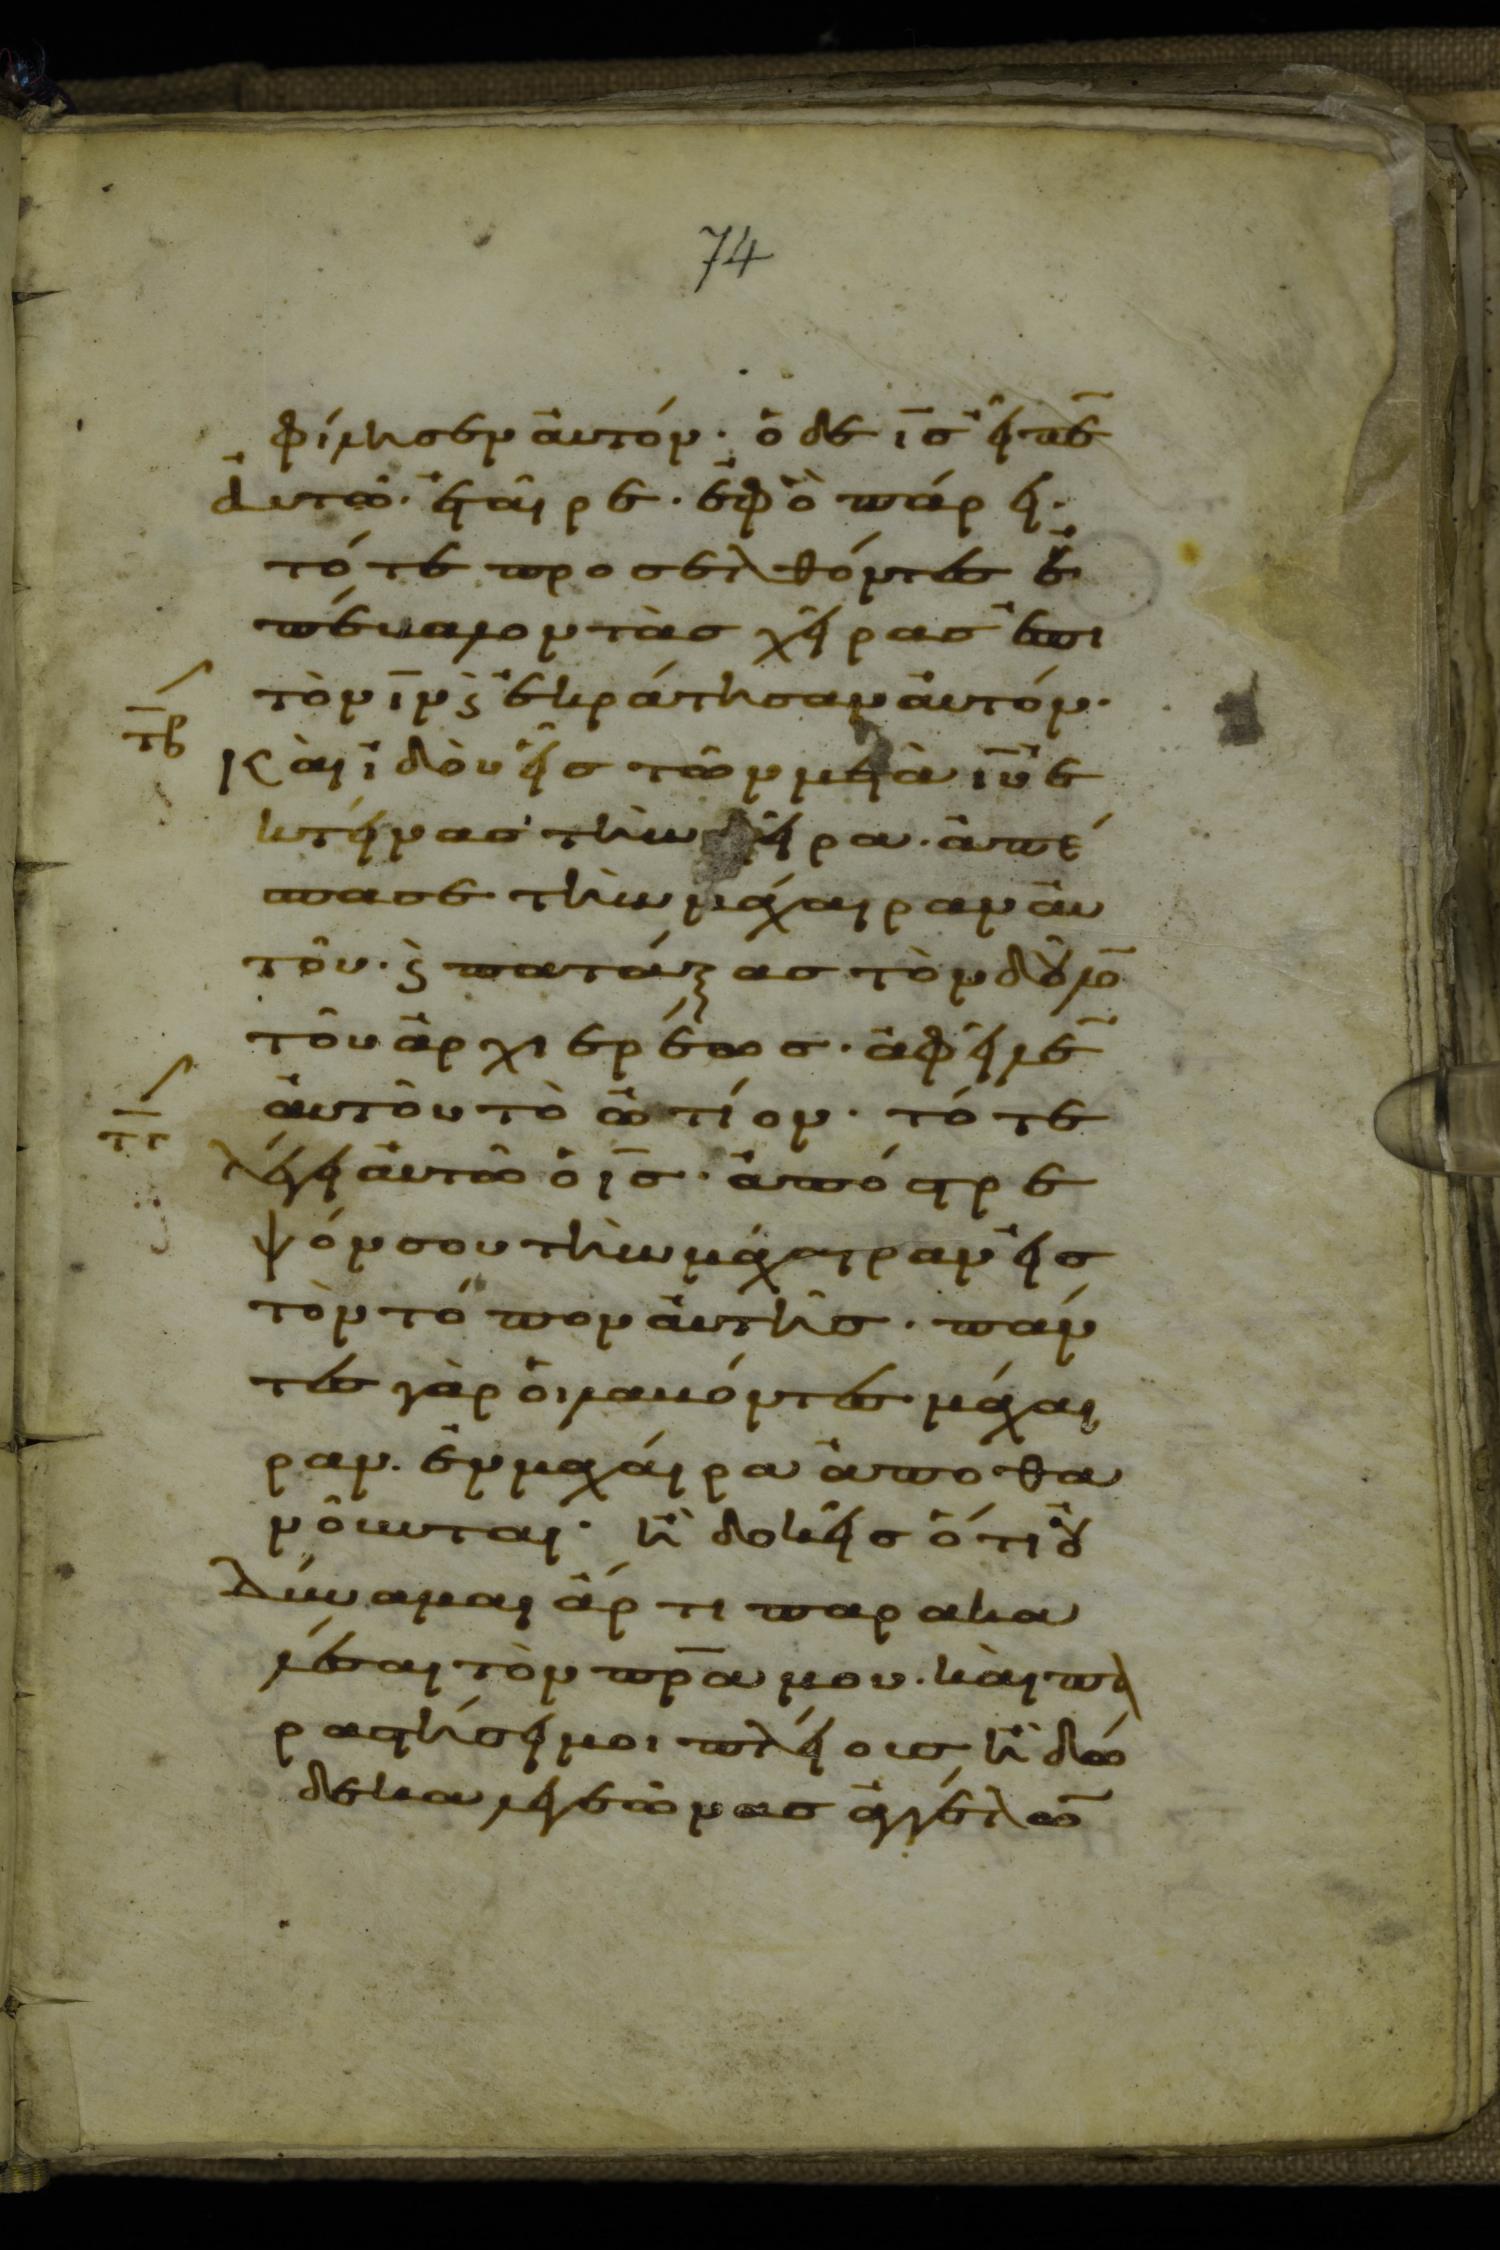 74
φίλησεν ἀυτόν· ὁ δε ις̅ εἶπε̅
ἀυτῶ· ἑταῖρε· ἐφ ὃ πάρει·
τότε προσελθόντες ἐ
πέβαλον τὰσ χεῖρασ ἐπι
τὸν ιν̅ ϗ ἐκράτησαν ἀυτόν·
τβ̅
Κὰι ἰδὸυ εἷσ τῶν μετὰ ιυ̅ ἐ
κτείνασ τὴν χεῖρα· ἀπέ
πασε τὴν μάχαιραν ἀυ
τοῦ· ϗ πατάξασ τὸν δοῦλο̅
τοῦ ἀρχιερέωσ· ἀφεῖλε̅
ἀυτοῦ τὸ ὠτίον· τότε
τγ̅
λέγει ἀυτῶ ὁ ις̅· ἀπόστρε
ψόν σου τὴν μάχαιραν εἰσ
τὸν τόπον ἀυτῆσ· πάν
τεσ γὰρ ὁι λαβόντεσ μάχαι
ραν· ἐν μαχάιρα ἀποθα
νοῦνται· ἢ δοκεῖσ ὅτι ὀυ
δύναμαι ἄρτι παρακα
λέσαι τὸν πρ̅α μου· κὰι πα
ραστήσει μοι πλείουσ ἢ δώ
δεκα λεγεῶνασ ἀγγέλω̅